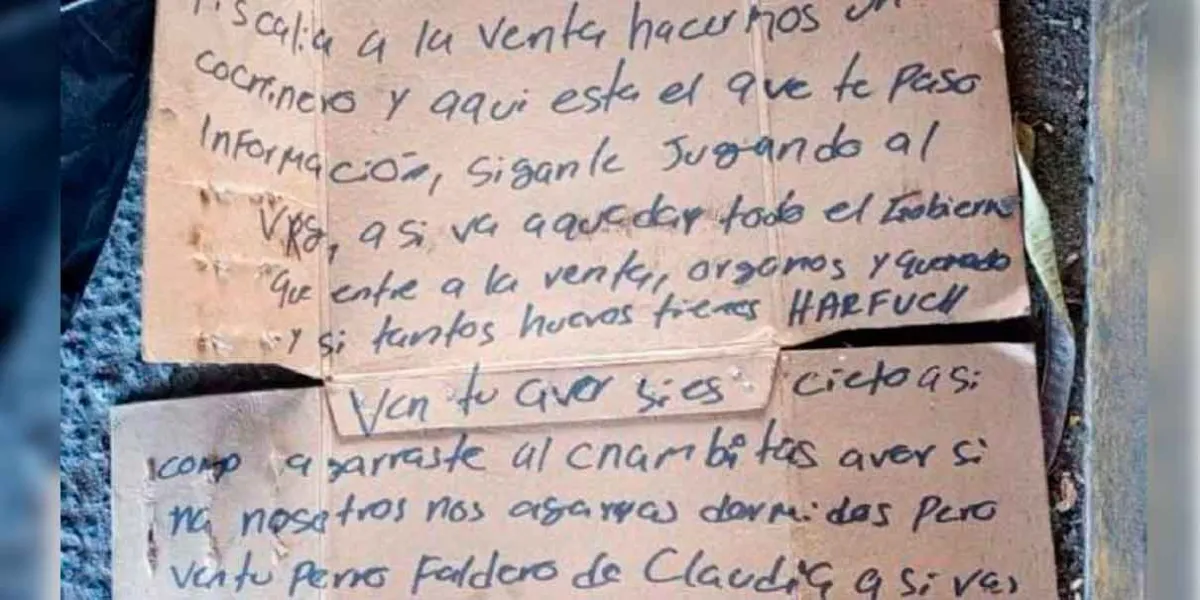 Fiscalia a la venta hacermos un
cocrinero y aqui esta el que te paso
Información, siganle Jugando al
Vrg, a si va a quedar todo el Gobierno
que entre a la venta, organos y quemado
y si tantos huevos tienes HARFUCH
Ven tu aver si es cieto a si
como agarraste al chambitas aver si
na nosotros nos agarras dormidos Pero
ven tu Perro Faldero de Claudia a si vas